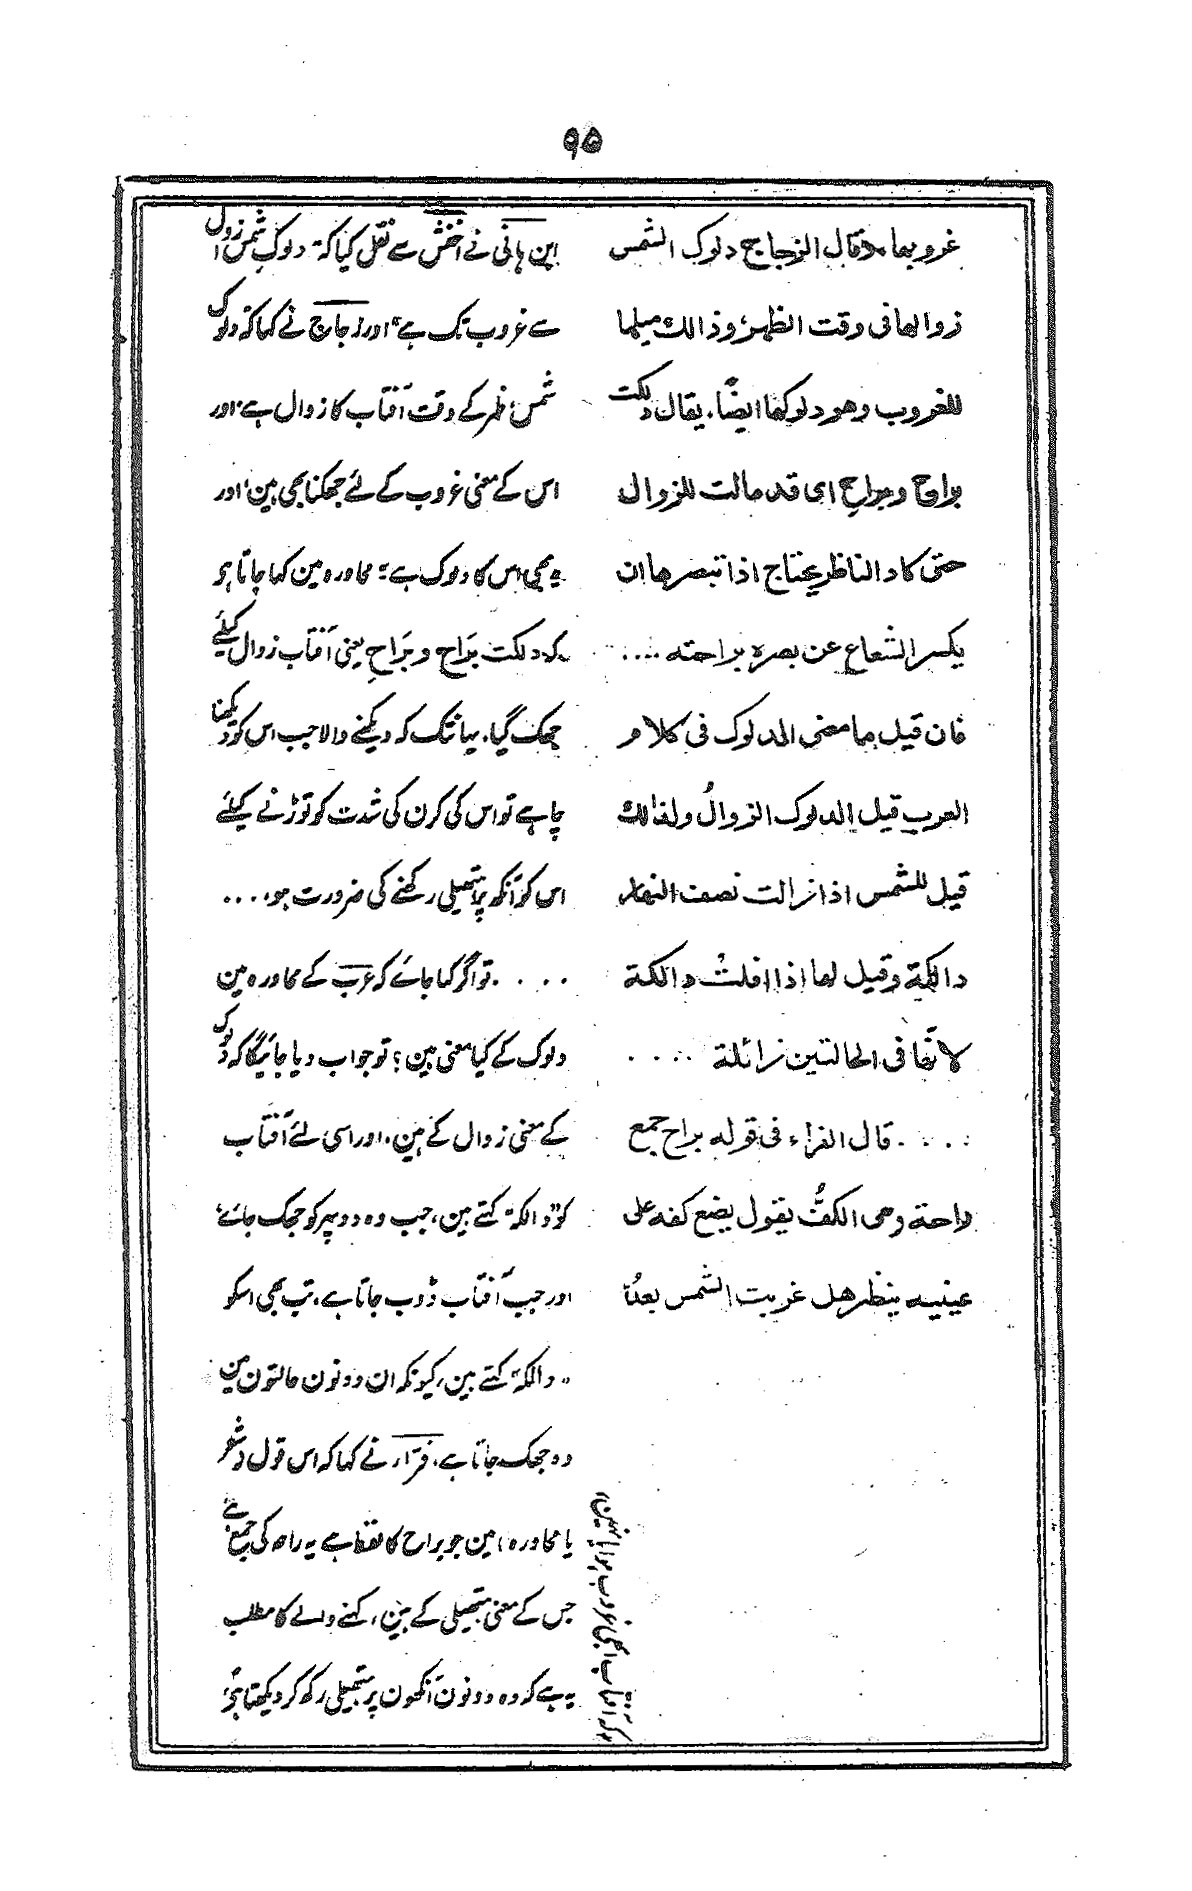 ۹۵
غروبها، وقال الزجاج دلوك الشمس
زوالها فی وقت الظهر، وذالك میلها
للغروب وهو دلوكها ایضًا، یقال دلکت
براح و براحِ ای قد مالت للزوال
حتی کاد الناظر یحتاج اذا تبصرها ان
یکسر الشعاع عن بصره براحته ....
فان قیل ما معنی الدلوک فی کلام
العرب قیل الدلوک الزوالُ ولذالك
قیل للشمس اذا زالت نصف النهار
دالکة وقیل لها اذا افلتْ دالکة
لانّها فی الحالتین زائلة ....
.... قال الفراء فی قوله براح جمع
راحة وهی الکفُّ یقول یضع کفه علی
عینیه ینظر هل غربت الشمس بعدُ
ابن ہانی نے اخفش سے نقل کیا کہ "دلوکِ شمس زوال
سے غروب تک ہے" اور زجاج نے کہا کہ دلوک
شمس، ظہر کے وقت آفتاب کا زوال ہے، اور
اس کے معنی غروب کے لئے جھکنا بھی ہین، اور
یہ بھی اس کا دلوک ہے" محاورہ مین کہا جاتا ہو
کہ دلکت بَرَاح و بَرَاحِ یعنی آفتاب زوال کیلئے
جھک گیا، یہانتک کہ دیکھنے والا جب اس کو دیکھنا
چاہے تو اس کی کرن کی شدت کو توڑنے کیلئے
اس کو آنکھ پر ہتھیلی رکھنے کی ضرورت ہو، ...
.... تو اگر کہا جائے کہ عرب کے محاورہ مین
دلوک کے کیا معنی ہین؟ تو جواب دیا جائیگا کہ دلوک
کے معنی زوال کے ہین، اور اسی لئے آفتاب
کو "دالکہ" کہتے ہین، جب وہ دوپہر کو جھک جائے،
اور جب آفتاب ڈوب جاتا ہے، تب بھی اسکو
"دالکہ" کہتے ہین، کیونکہ ان دونون حالتون مین
وہ جھک جاتا ہے، فرّاء نے کہا کہ اس قول (شعر
یا محاورہ) مین جو براح کا لفظ ہے یہ راحہ کی جمع ہے
جس کے معنی ہتھیلی کے ہین، کہنے والے کا مطلب
یہ ہے کہ وہ دونون آنکھون پر ہتھیلی رکھ کر دیکھتا ہو،
کہ آفتاب ابھی غروب ہوا یا نہین،